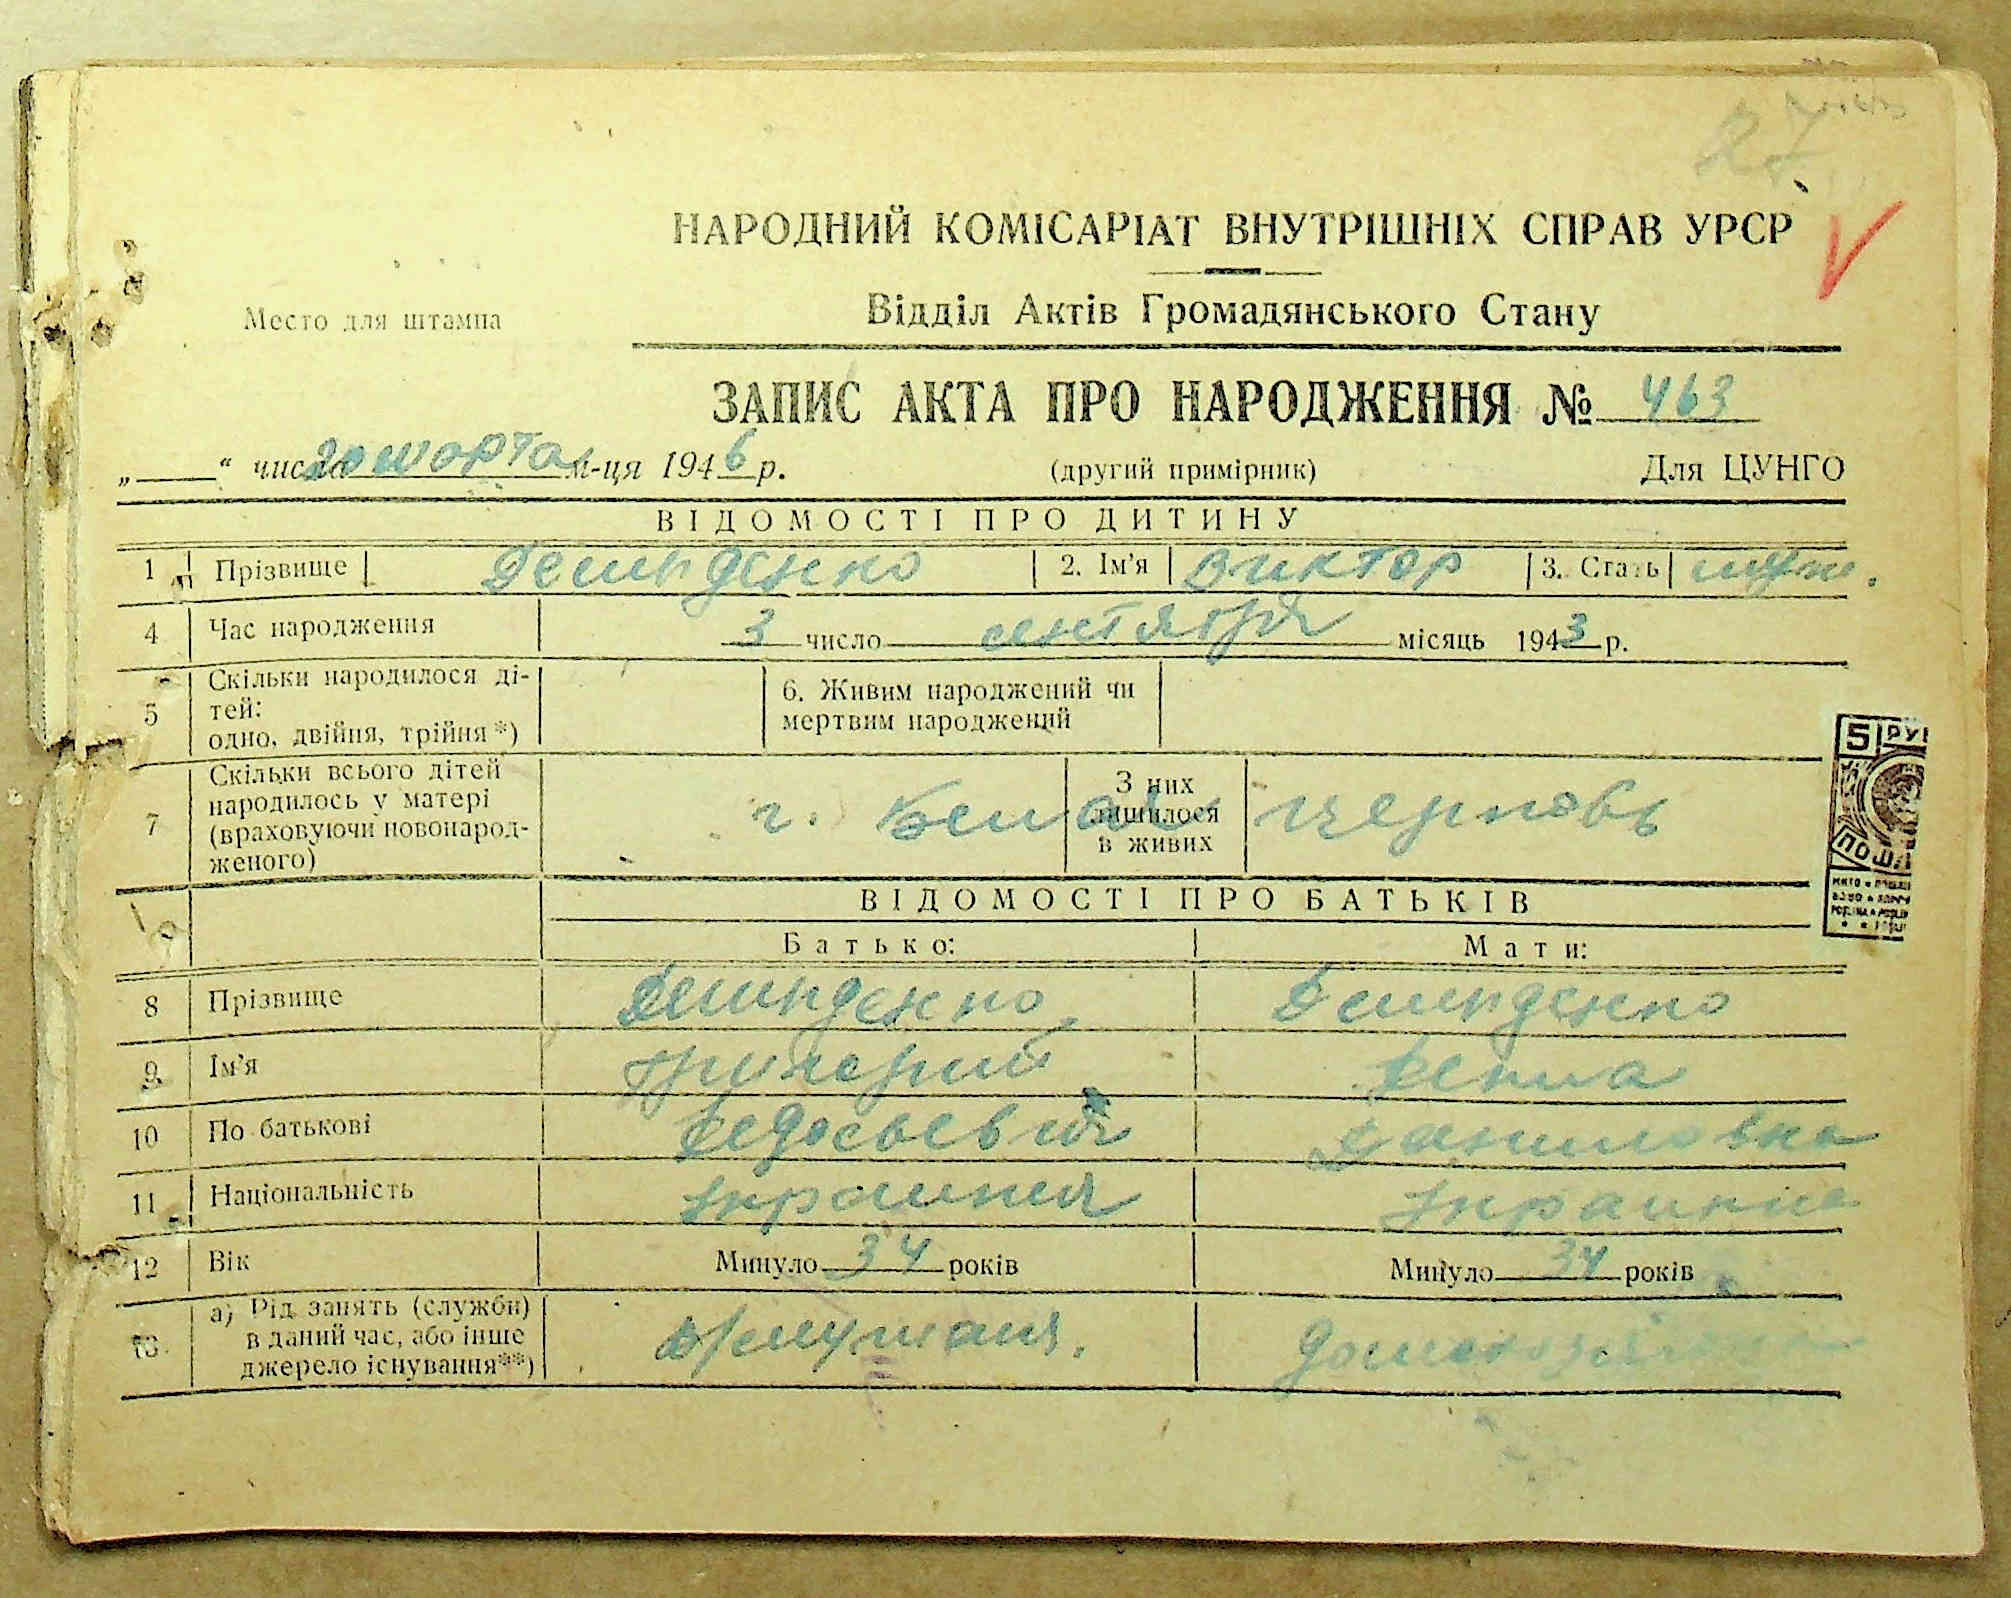 27
НАРОДНИЙ КОМІСАРІАТ ВНУТРІШНІХ СПРАВ УРСР
Место для штампа
Відділ Актів Громадянського Стану
ЗАПИС АКТА ПРО НАРОДЖЕННЯ № 463
„ “ числа 20 марта м-ця 1946 р. (другий примірник) Для ЦУНГО
ВІДОМОСТІ ПРО ДИТИНУ
1 Прізвище Демиденко 2. Ім'я Виктор 3. Стать муж.
4 Час народження 3 число сентября місяць 1943 р.
5 Скільки народилося ді-
тей:
одно, двійня, трійня*)
6. Живим народжений чи
мертвим народжений
7 Скільки всього дітей
народилось у матері
(враховуючи новонарод-
женого)
г.
З них
лишилося
в живих
5 РУ
ПОШ
ВІДОМОСТІ ПРО БАТЬКІВ
Батько: Мати:
8 Прізвище Демиденко Демиденко
9 Ім'я Григорий
10 По батькові Федосьевич Даниловна
11 Національність украинец украинка
12 Вік Минуло 34 років Минуло 34 років
13 а) Рід занять (служби)
в даний час, або інше
джерело існування**)
служащий. домохозяйка